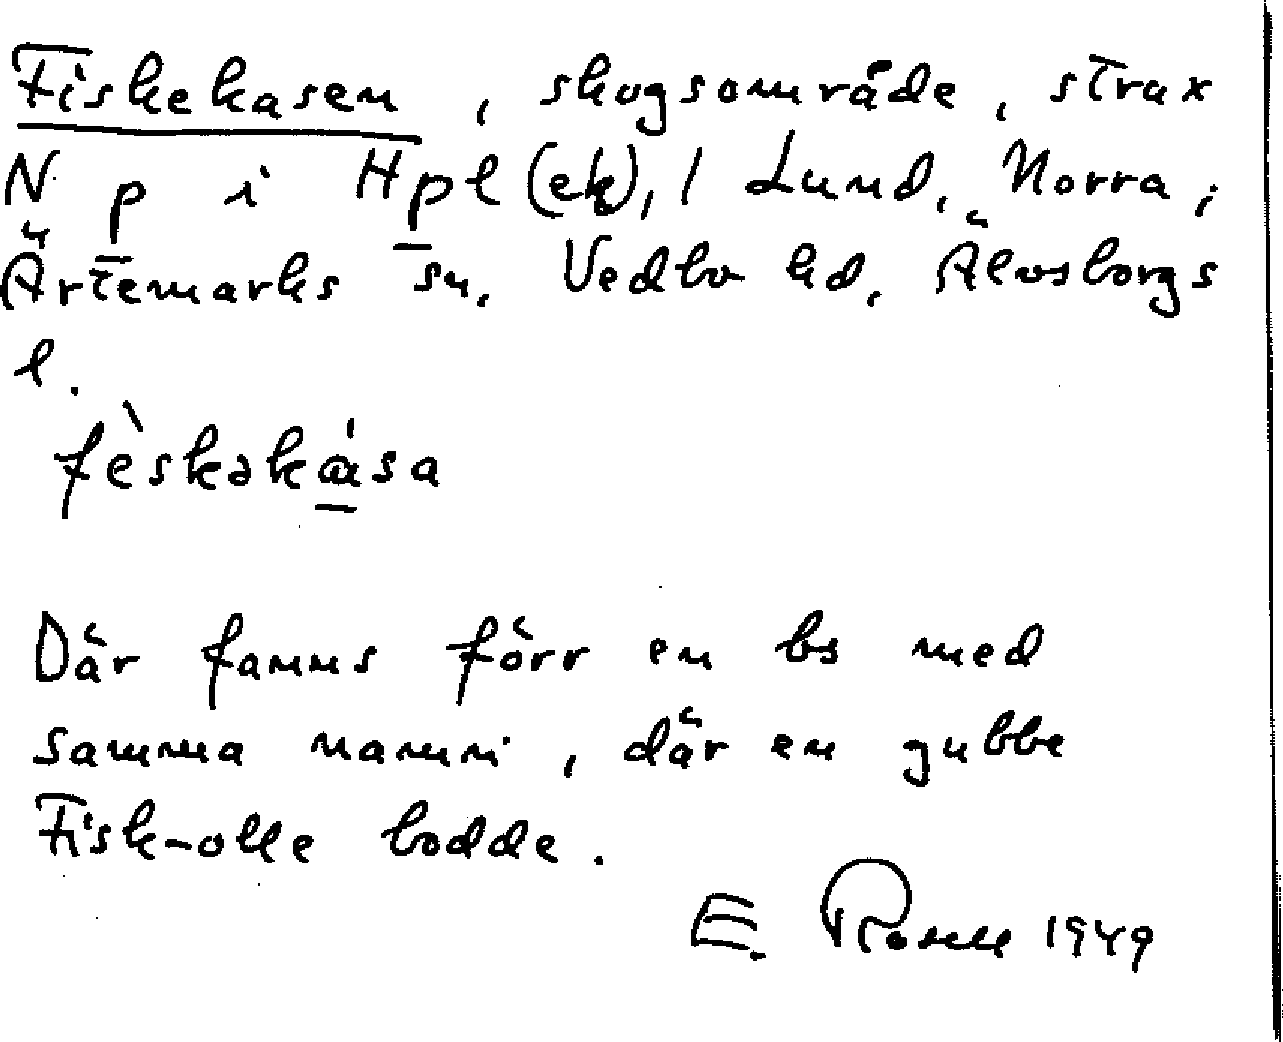 Fiskekasen, skogsområde, strax
N p i Hpl (ek), / Lund, Norra,
Ärtemarks sn, Vedbo hd, Älvsborgs
l.
fèskəkása
Där fanns förr en bs med
samma namn, där en gubbe
Fisk-olle bodde.
E. Rosell 1949